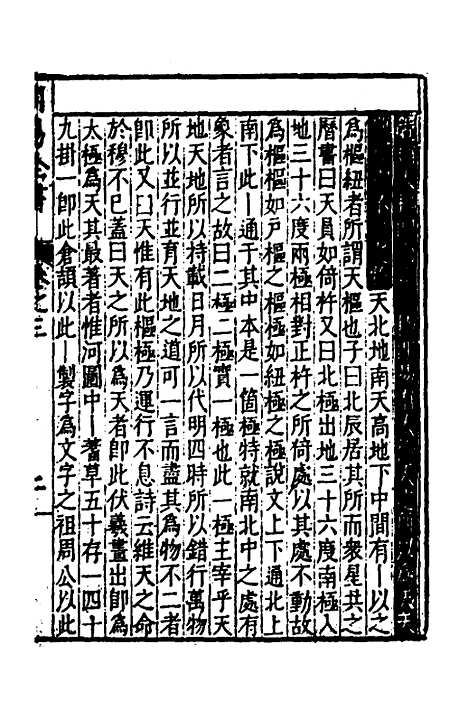 天北地南天高地下中間有丨以之
為樞紐者所謂天樞也子曰北辰居其所而衆星共之
曆書曰天員如倚杵又曰北極出地三十六度南極入
地三十六度兩極相對正杵之所倚處以其處不動故
為樞樞如戶樞之樞極如紐極之極說文上下通北上
南下此丨通于其中本是一箇極特就南北中之處有
象者言之故曰二極二極實一極也此一極主宰乎天
地天地所以持載日月所以代明四時所以錯行萬物
所以並行並育天地之道可一言而盡其為物不二者
卽此又曰天惟有此樞極乃運行不息詩云維天之命
於穆不已蓋曰天之所以為天者卽此伏羲畫出卽為
太極為天其最著者惟河圖中丨蓍草五十存一四十
九掛一卽此倉頡以此丨製字為文字之祖周公以此
卷之三